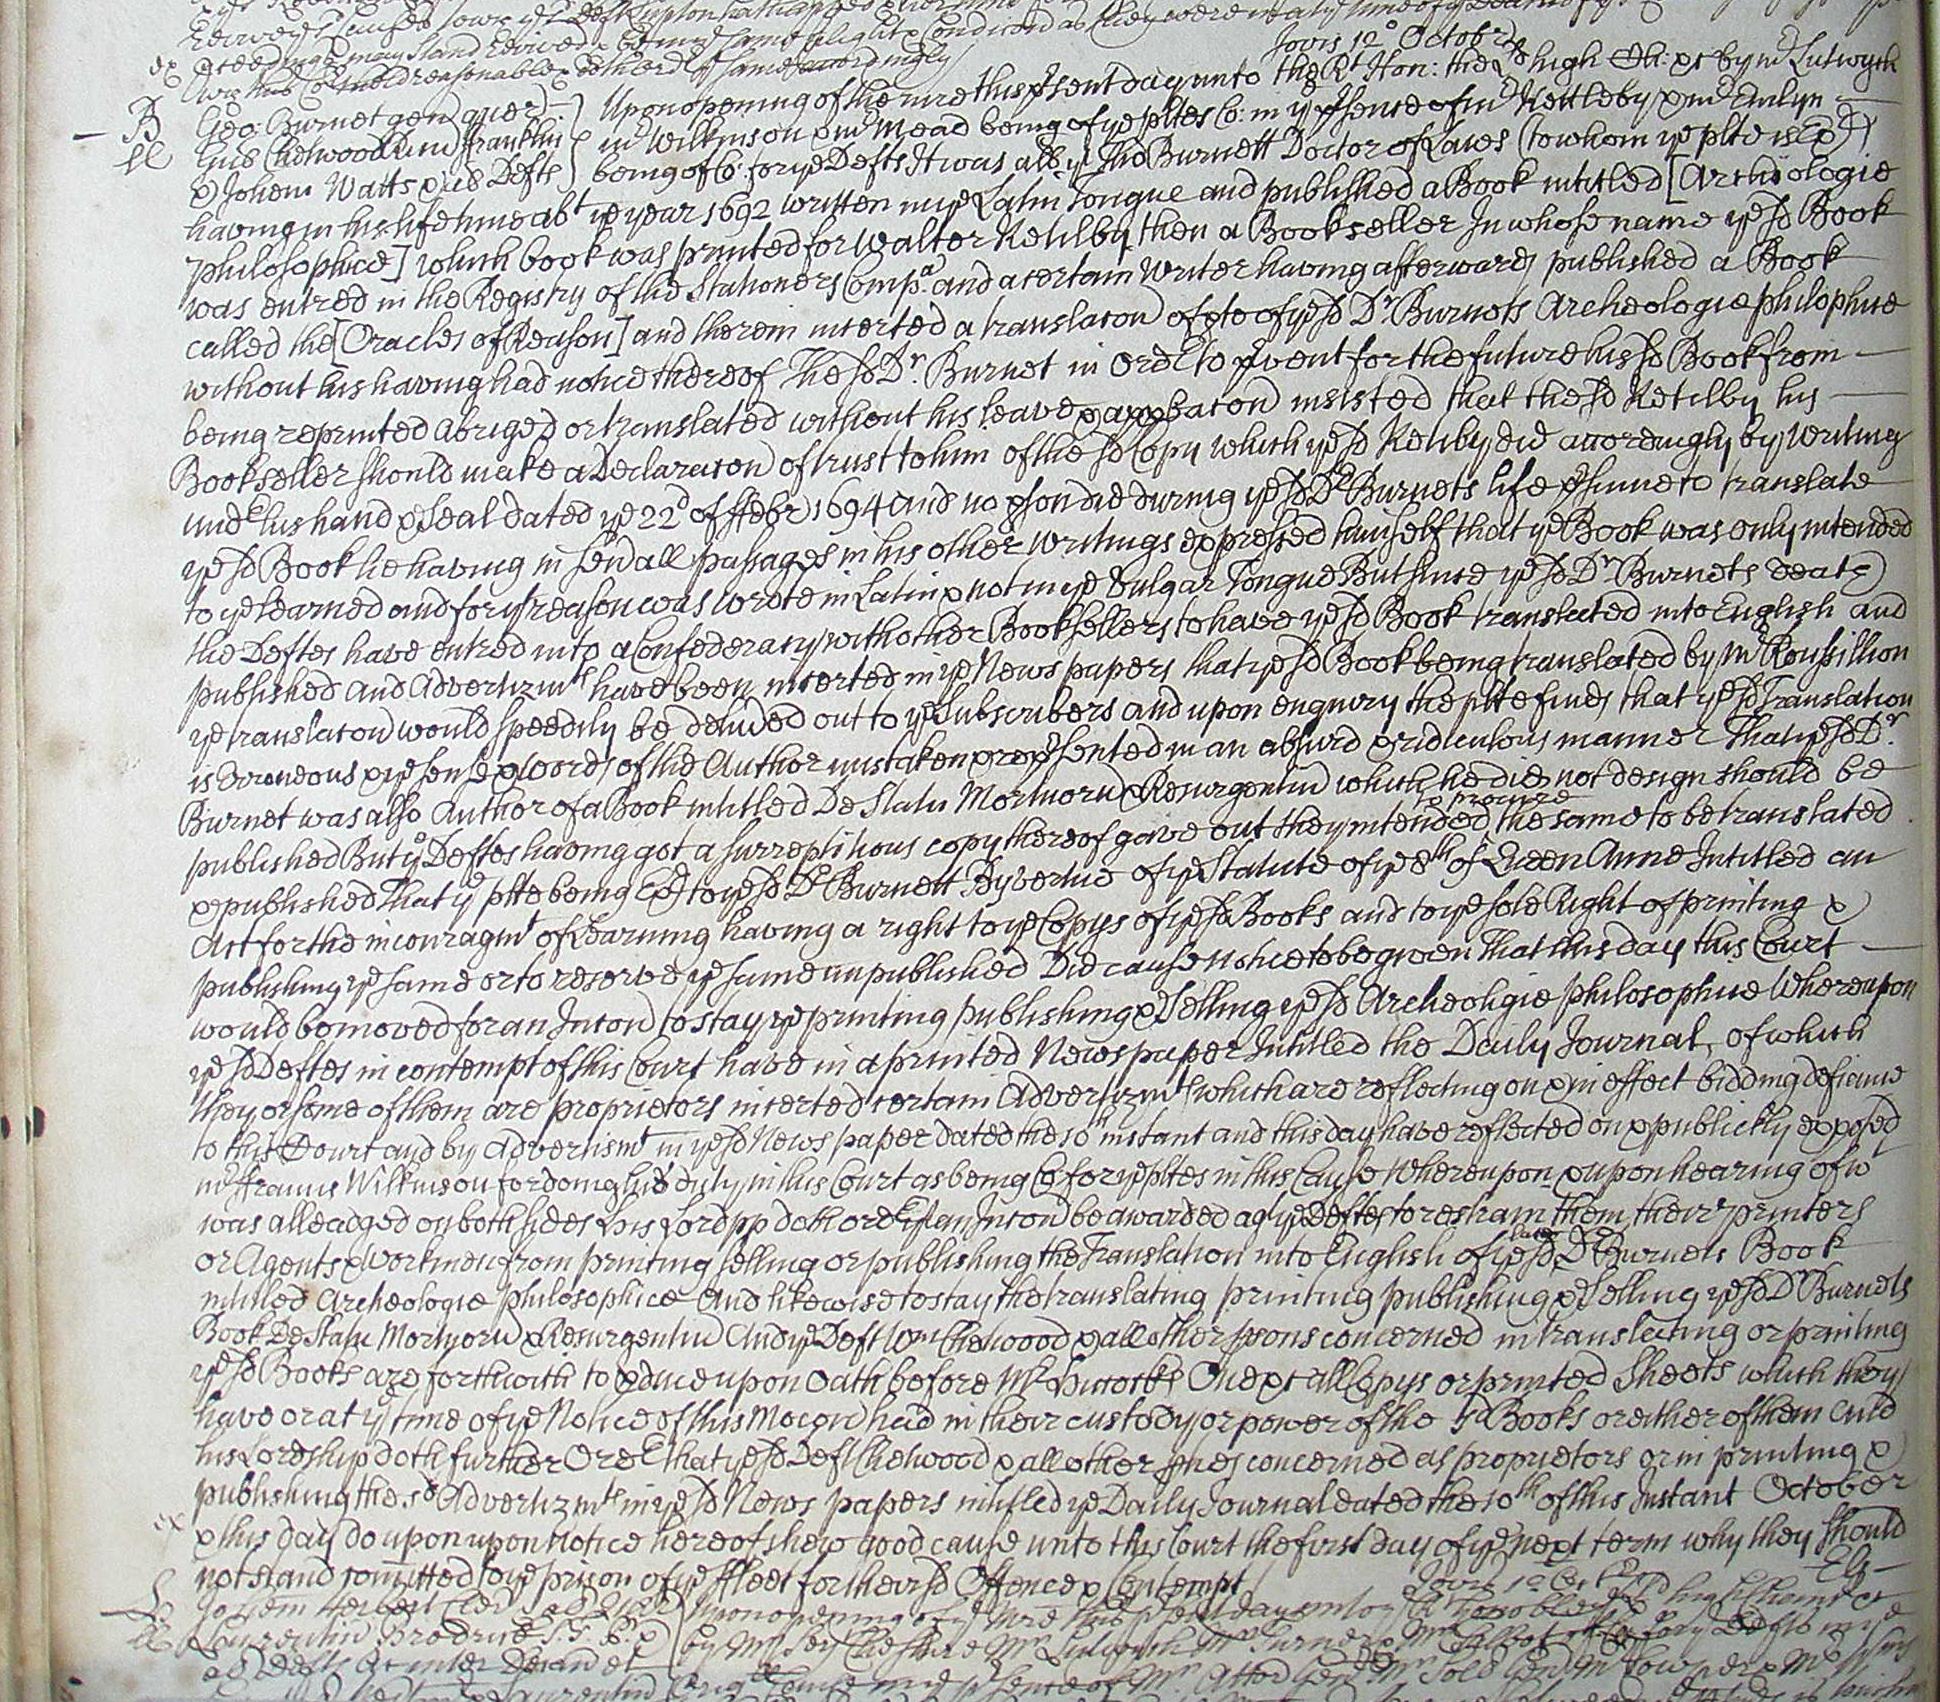 Jovis 12° Octobr
Geo: Burnet gen quer) Upon opening of the mre this psent day unto the Rt Hon: the Ld high Ch: &c by mr Lutwych
Gul Chetwood Rim Franklin mr Wilkinson & mr Mead being of ye pltes Co: in ye psence of mr Kettleby & mr Emlyn
& Johem Watts & als Defts being of Co: for ye Defts It was alld yt Tho Burnett Doctor of Laws (to whom ye plte is Exr)
having in his life time abt ye year 1692 written in ye Latin Tongue and published a Book intitled [Archiologie
Philosophice] which book was printed for Walter Ketilby then a Bookseller In whose name ye sd Book
was entred in the Registry of the Stationers Compa and a certain Writer having afterwards published a Book
called the [Oracles of Reason] and therein incerted a translacon of pte of ye sd Dr Burnets Archeologie philophice
without his having had notice thereof The sd Dr. Burnet in order to pvent for the future his sd Book from
being reprinted abriged or translated without his leave & approbacon insisted that the sd Ketilby his
Bookseller should make a Declaracon of trust to him of the sd Copy which ye sd Ketilby did accordingly by Writing
under his hand & Seal dated ye 22d of ffebr 1694 and no pson did during ye sd Dr Burnets life psume to translate
ye sd Book he having in sevall passages in his other Writings expressed himself that ye Book was only intended
to ye learned and for yt reason was wrote in Latin & not in ye Vulgar Tongue But since ye sd Dr Burnets death
the Deftes have entred into a Confederacy with other Booksellers to have ye sd Book translated into English and
published and Advertizmts have been incerted in ye News papers that ye sd Book being translated by Mr Roussillion
ye translacon would speedily be delivered out to ye Subscribers and upon enquiry the plte finds that ye sd Translation
is Erroneous & ye sense & words of the Author mistaken & repsented in an absurd & ridiculous manner That ye sd Dr.
Burnet was also Author of a Book intitled De Statu Mortuoru & Resurgentiu which he did not design should be
published But ye Deftes having got a surreptitious copy thereof gave out they intended to procure the same to be translated
& published That ye plte being Exr to ye sd Dr Burnett By vertue of ye Statute of ye 8th of Queen Anne Intitled an
Act for the incouragmt of Learning having a right to ye Copys of ye sd Books and to ye sole Right of printing &
publishing ye same or to reserve ye same unpublished Did cause notice to be given that this day this Court
would be moved for an Incon to stay ye printing publishing & Selling ye sd Archeoligie Philosophice Whereupon
ye sd Deftes in contempt of this Court have in a printed News paper Intitled the Daily Journal, of which
they or some of them are proprietors incerted certain Advertizmts which are reflecting on & in effect bidding defiance
to this Court and by Advertismt in ye sd News paper dated the 10th instant and this day have reflected on & publickly exposed
mr ffrancis Wilkinson for doing his duty in this Court as being Co for ye pltes in this Cause Whereupon & upon hearing of wt
was alleadged on both sides his Lordpp doth order yt an Incon be awarded agt ye Deftes to restrain them, their printers
or Agents & Workmen from printing selling or publishing the Translation into English of ye sd Dr Burnets Book
intitled Archeologie Philosophice And likewise to stay the translating printing publishing & Selling ye sd Dr Burnets
Book De Statu Mortuoru & Resurgentiu And ye Deft Wm Chetwood & all other psons concerned in translating or printing
ye sd Books are forthwith to pduce upon Oath before Mr Hiccocks One &c all Copys or printed Sheets which they
have or at ye time of ye Notice of this Mocon had in their custody or power of the sd Books or either of them And
his Lordship doth further Order that ye sd Deft Chetwood & all other ptes concerned as proprietors or in printing &
publishing the sd Advertizmts in ye sd News papers intitled ye Daily Journal dated the 10th of this Instant October
& this day do upon upon Notice hereof shew good cause unto this Court the first day of ye next term why they should
not stand comitted to ye prison of ye ffleet for their sd Offence & Contempt